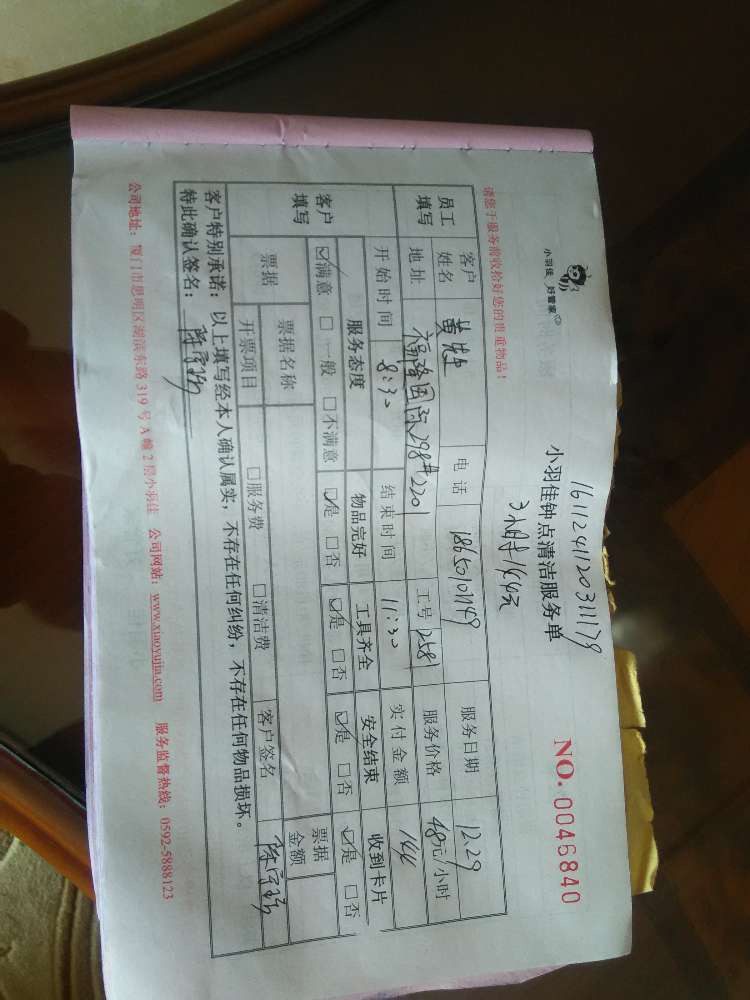 小羽佳 好管家
16112411203111179
小羽佳钟点清洁服务单
3小时 144元
NO. 0046840
请您于服务前收拾好您的贵重物品！
员工填写 客户姓名 电话 18650101149 服务日期 12.29
地址 国际298#2201 工号 258 服务价格 48元/小时
开始时间 8:30 结束时间 11:30 实付金额 144
客户填写 服务态度 物品完好 工具齐全 安全结束 收到卡片
☑满意 □一般 □不满意 ☑是 □否 ☑是 □否 ☑是 □否 ☑是 □否
票据 票据名称 票据金额
开票项目 □服务费 □清洁费 客户签名
客户特别承诺：以上填写经本人确认属实，不存在任何纠纷，不存在任何物品损坏。
特此确认签名：
公司地址：厦门市思明区湖滨东路 319 号 A 幢 2 层小羽佳 公司网站：www.xiaoyujia.com 服务监督热线：0592-5888123